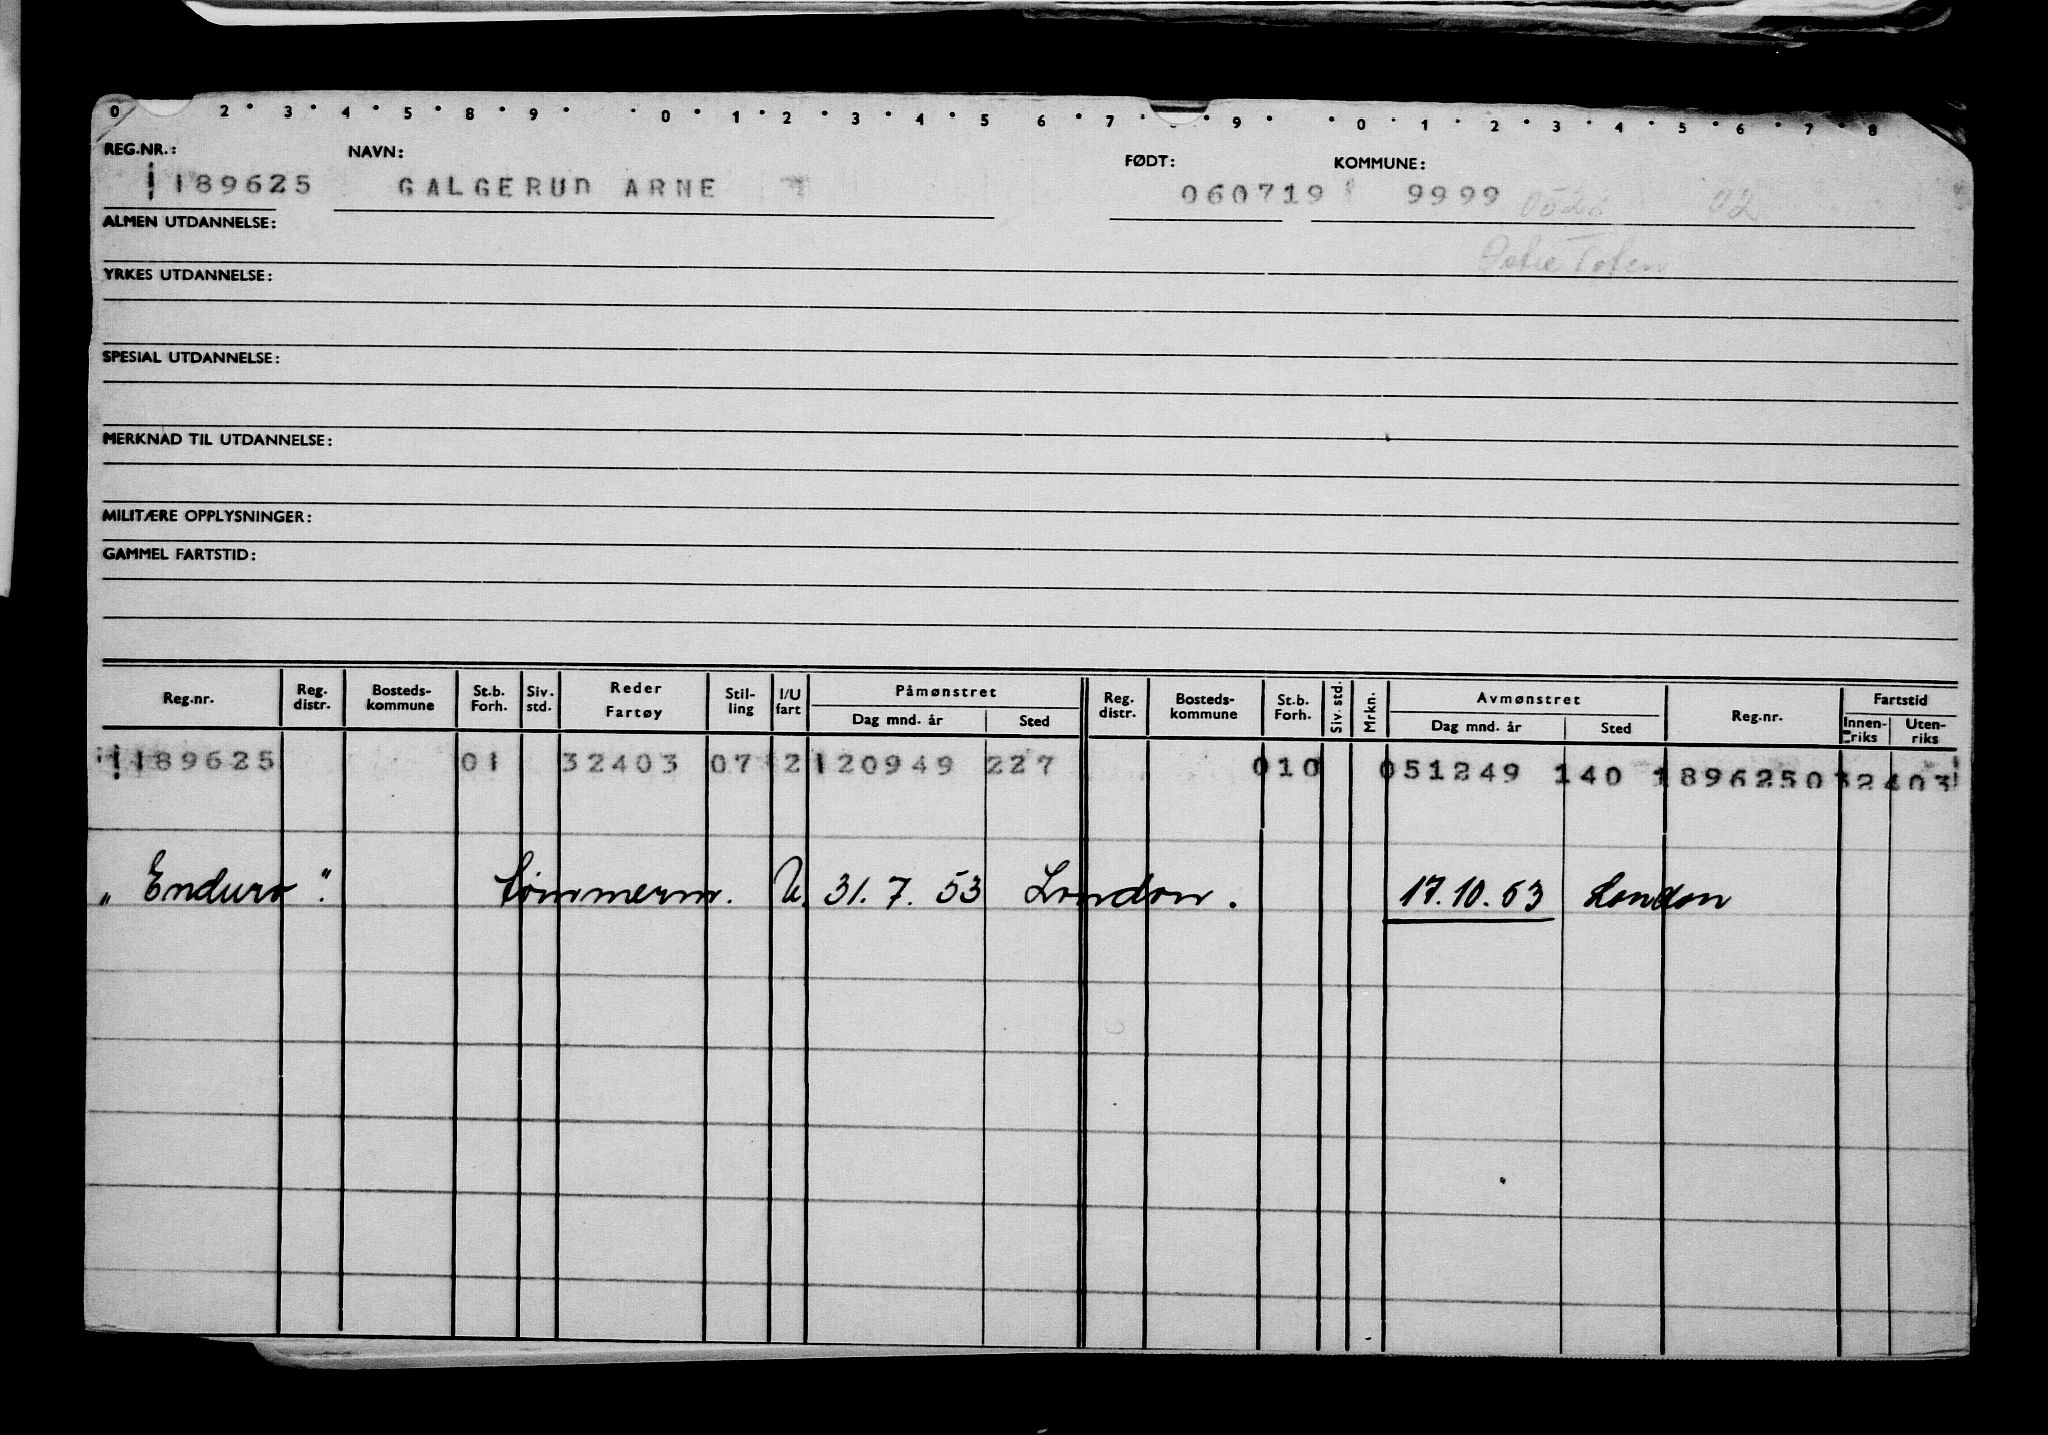 0 2 • 3 • 4 • 5 • 8 • 9 • • 0 • 1 • 2 • 3 • 4 • 5 6 • 7 • • 9 • • 0 • 1 • 2 • 3 • 4 • 5 • 6 • 7 • 8
REG.NR.: NAVN: FØDT: KOMMUNE:
189625 GALGERUD ARNE 060719 9999 0528 02
ALMEN UTDANNELSE:
Østre Toten
YRKES UTDANNELSE:
SPESIAL UTDANNELSE:
MERKNAD TIL UTDANNELSE:
MILITÆRE OPPLYSNINGER:
GAMMEL FARTSTID:
Reg.nr. Reg. distr. Bosteds-kommune St.b. Forh. Siv. std. Reder Fartøy Stil-ling I/U fart Påmønstret Dag mnd. år Sted Reg. distr. Bosteds-kommune St.b. Forh. Siv. std. Mrkn. Avmønstret Dag mnd. år Sted Reg.nr. Fartstid Innen-riks Uten-riks
189625 01 32403 07 2 120949 227 010 051249 140 189625032403
„Enduro". tømmerm. U. 31.7.53 London. 17.10.53 London